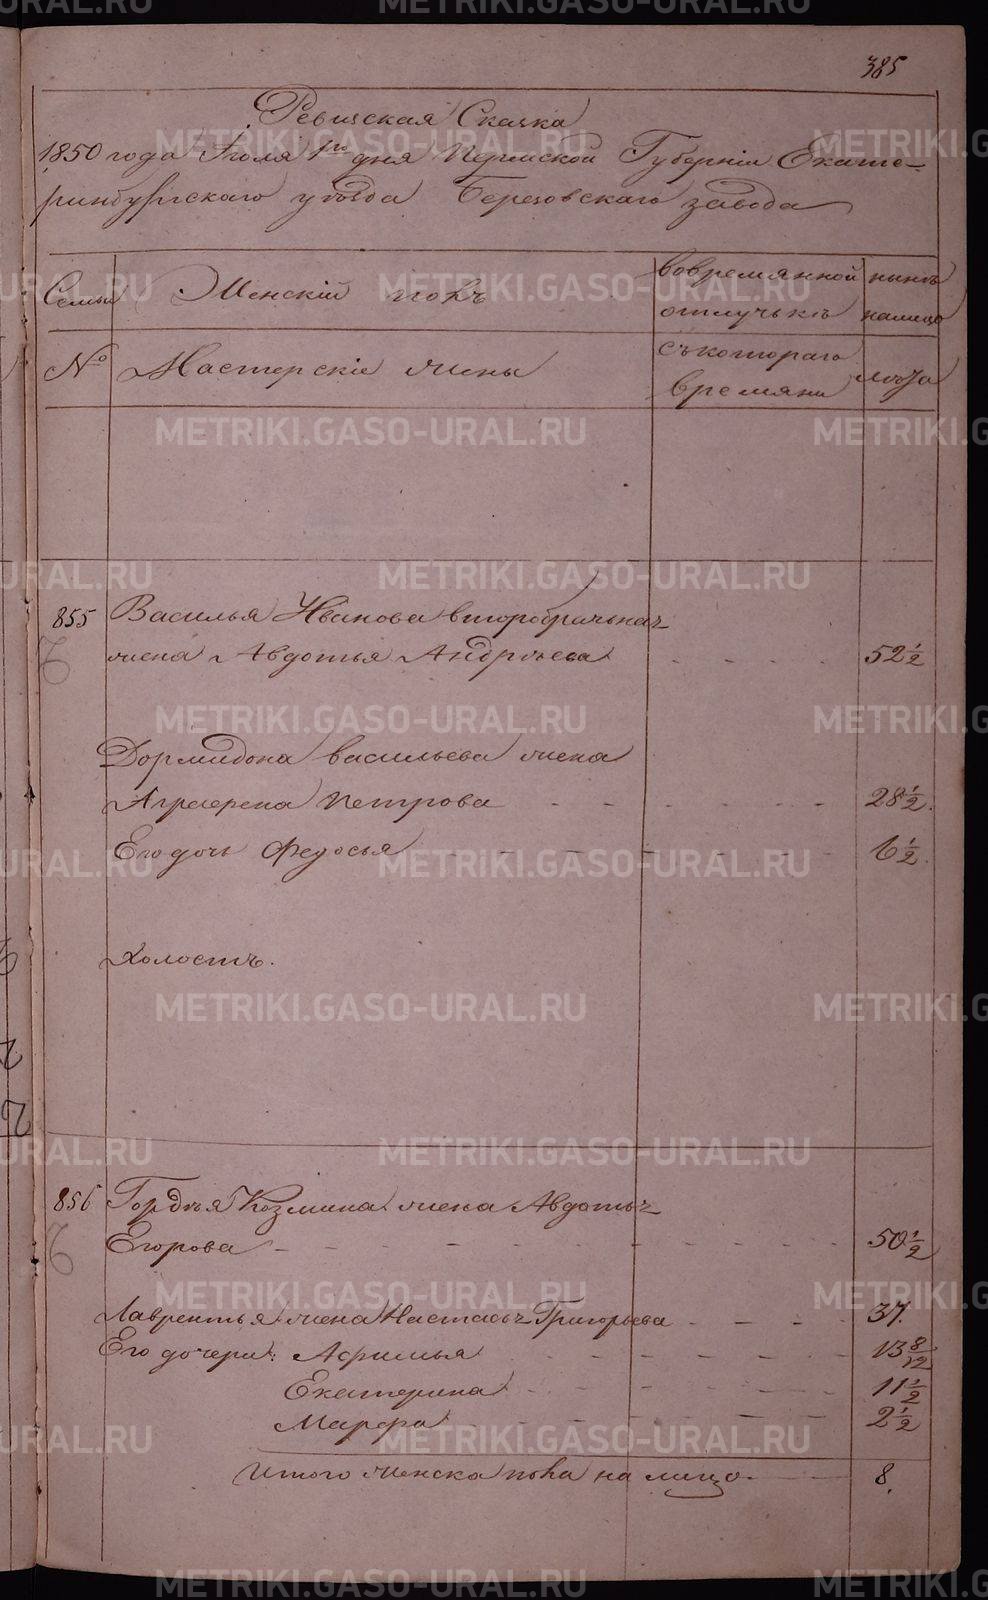 385
Ревизская Сказка
1850 года Июля 1го дня Пермской Губерніи Екате-
ринбургскаго уѣзда Березовскаго завода
Семьи Женскій полъ вовремянной нынѣ
отлучькѣ налицо
№ Мастерскіе жены съкотораго лѹта
времяни
855 Василья Иванова второбрачьная
жена Авдотья Андрѣева 52 1/2
Дормидона васильева жена
Аграферена Петрова 28 1/2.
Его дочь Федосья 6 1/2.
Холостъ.
856 Гордѣя Козмина жена Авдотья
Егорова 50 1/2
Лаврентья жена Настасья Григорьева 37.
Его дочери: Афимья 13 8/12
Екатерина 11 1/2
Марфа 2 1/2
Итого женска пола на лицо 8.
METRIKI.GASO-URAL.RU